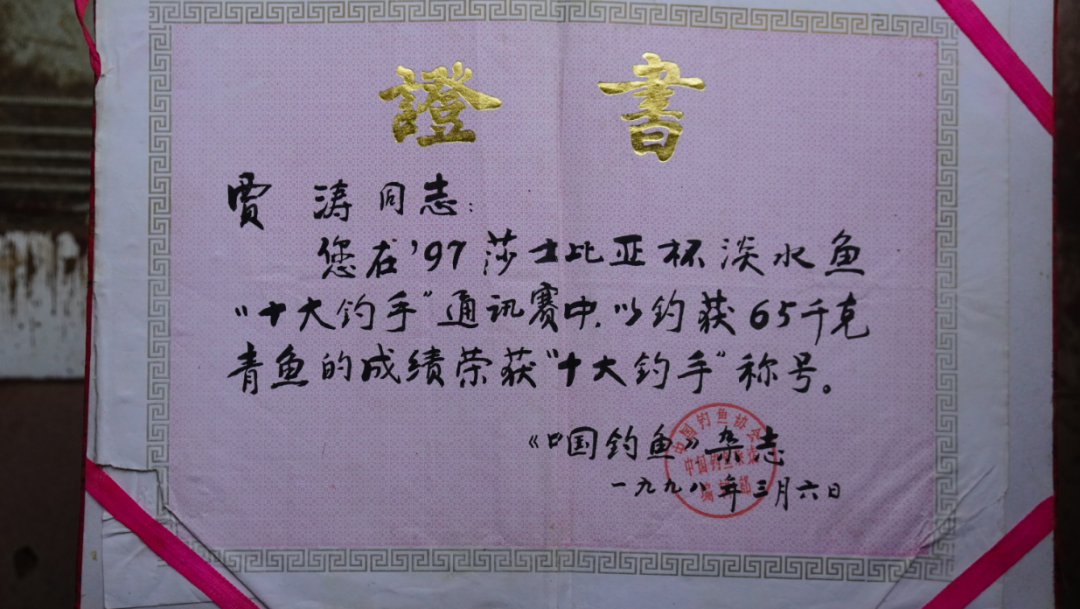 證書
贾涛同志:
您在'97莎士比亚杯淡水鱼
“十大钓手”通讯赛中,以钓获65千克
青鱼的成绩荣获“十大钓手”称号。
《中国钓鱼》杂志
一九九八年三月六日
中国钓鱼协会